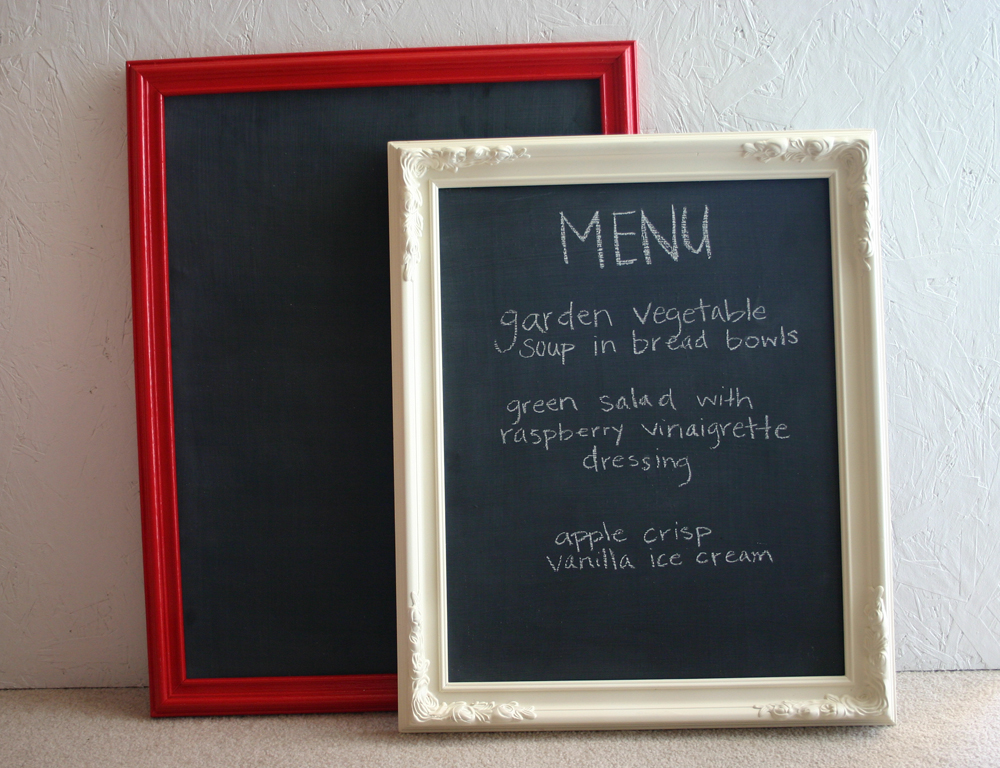 MENU
garden vegetable
soup in bread bowls
green salad with
raspberry vinaigrette
dressing
apple crisp
vanilla ice cream